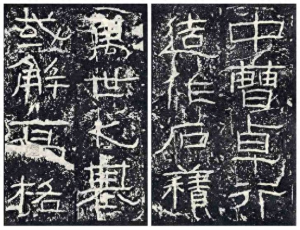 中曹卓行
造作石積
萬世之基
或解高格